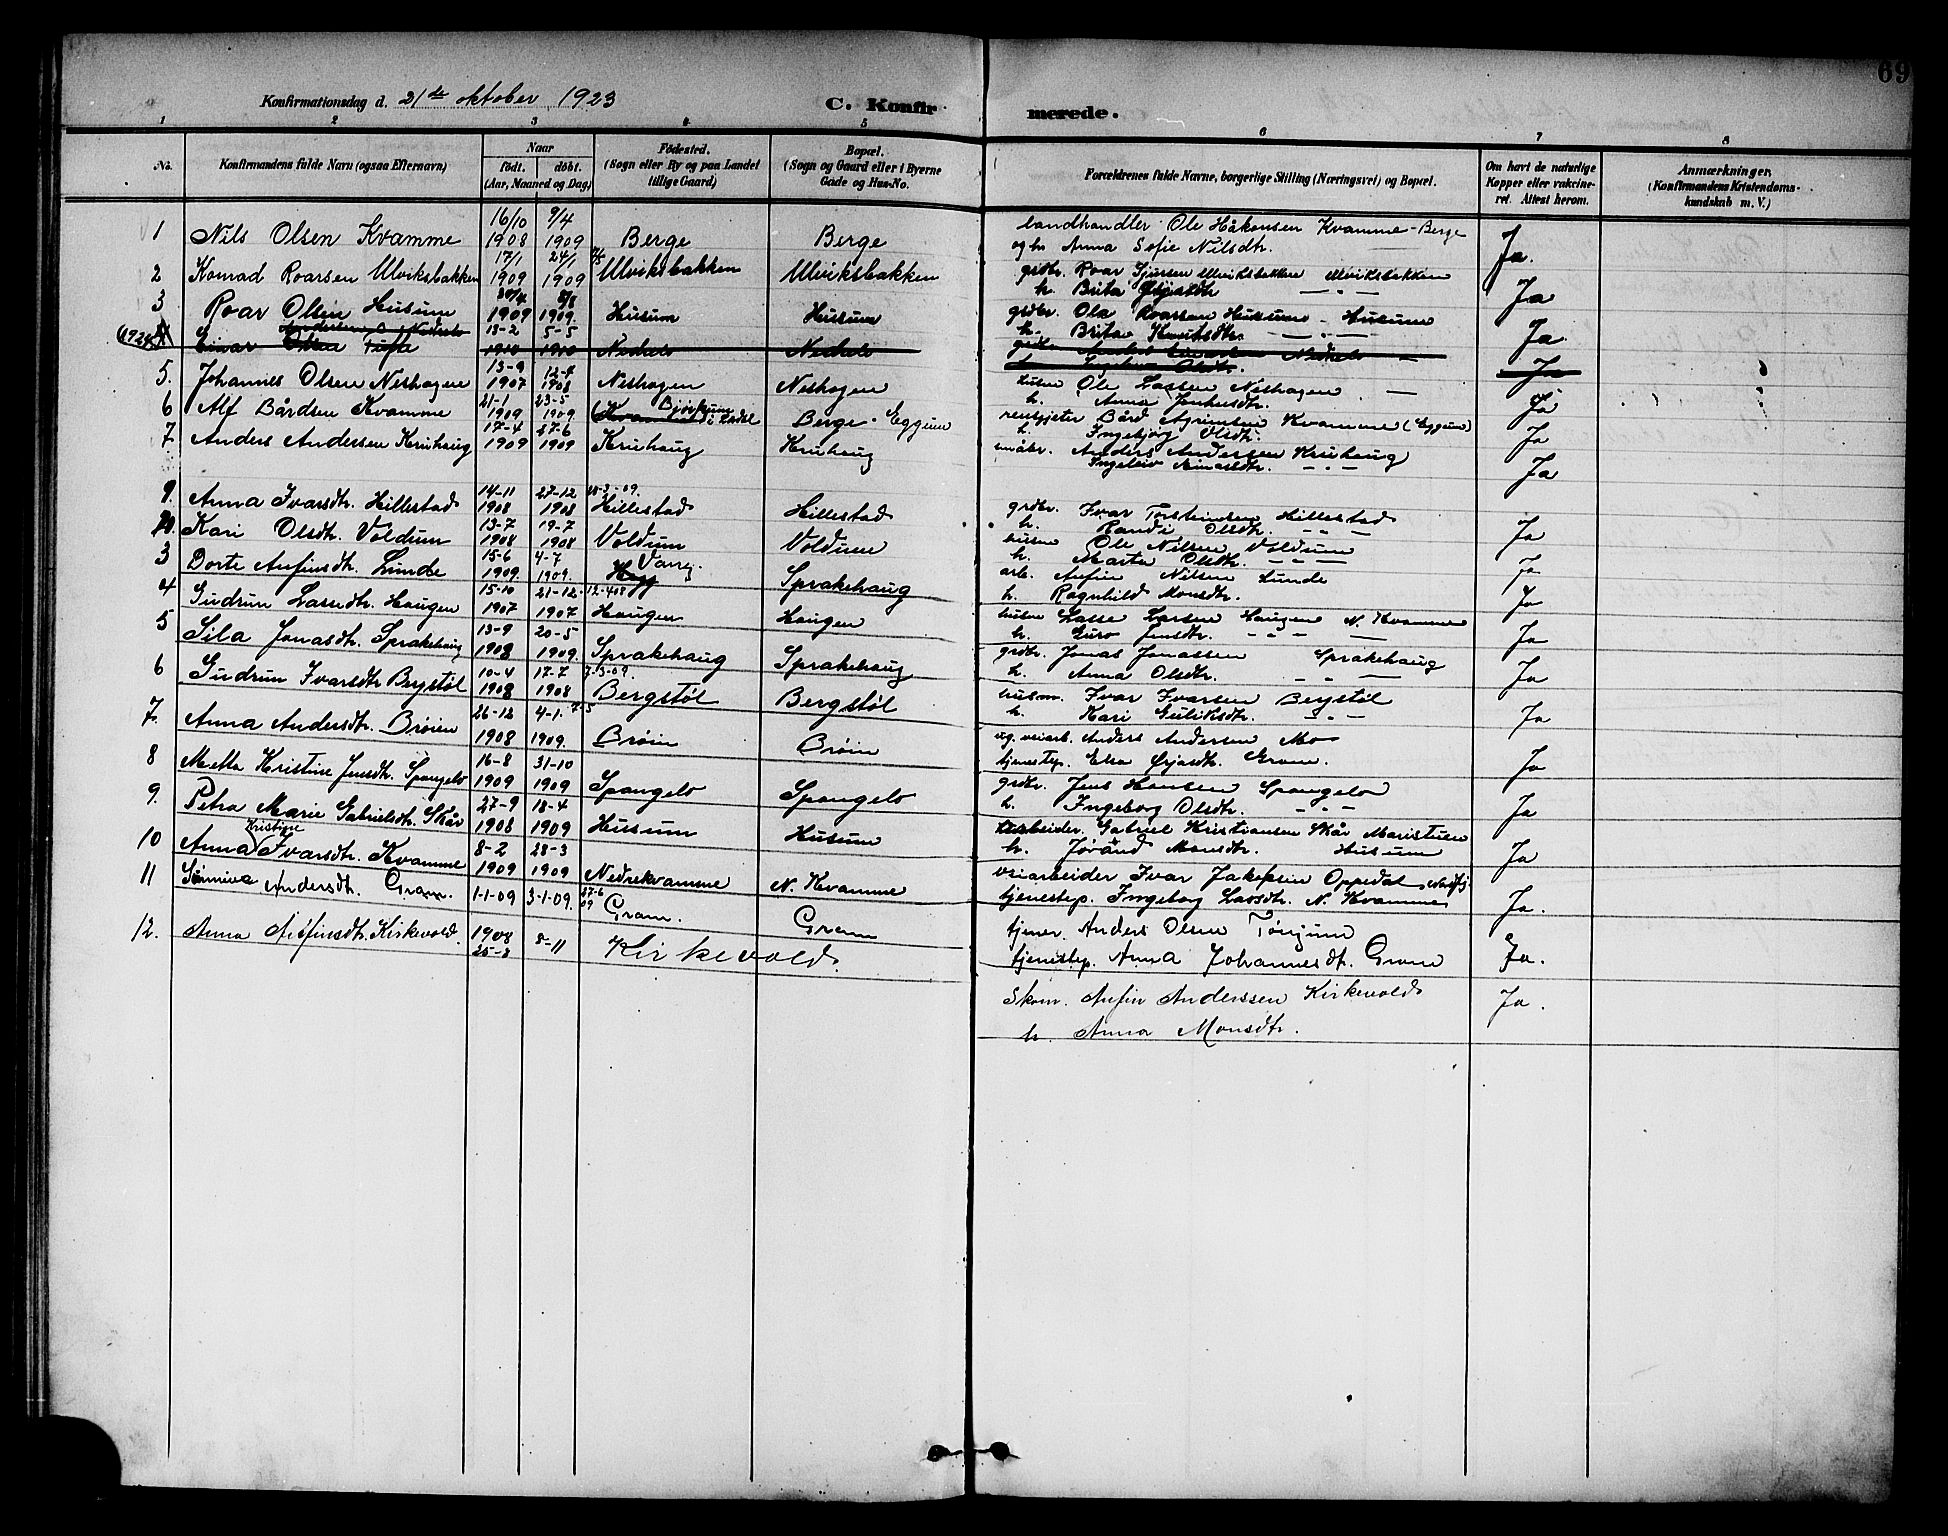 69
Konfirmationsdag d. 21de oktober 1923
C. Konfirmerede.
1 2 3 4 5 6 7 8
No. Konfirmandens fulde Navn (ogsaa Efternavn) Naar født. døbt. (Aar, Maaned og Dag) Fødested. (Sogn eller By og paa Landet tillige Gaard) Bopæl. (Sogn og Gaard eller i Byerne Gade og Hus-No. Forældrenes fulde Navne, borgerlige Stilling (Næringsvei) og Bopæl. Om havt de naturlige Kopper eller vakcineret. Attest herom. Anmærkninger. (Konfirmandens Kristendomskundskab m. V.)
1 Nils Olsen Kvamme 16/10 1908 9/4 1909 Berge Berge landhandler Ole Håkonsen Kvamme - Berge Ja.
og h. Anna Sofie Nilsdtr.
2 Konrad Roarsen Ulviksbakken 17/1 1909 24/1 1909 Ulviksbakken Ulviksbakken grdbr. Roar Sjursen Ulviksbakken Ulviksbakken Ja
h. Brita
3 Roar Olsen Husum 30/4 1909 8/8 1909. Husum Husum grdbr. Ola Roarsen Husum - Husum Ja.
h. Brita Knutsdtr.
(1924) 4 Einar Olsen Tufa 13-2 1910 5-5 1910 Nedrelo Nedrelo Ja
5. Johannes Olsen Neshagen 13-9 1907 12-4 1908 Neshagen Neshagen husm Ole Lassen Neshagen Ja
h. Anna
6 Alf Bårdsen Kvamme 21-1 1909 23-5 1909 Bjørkum i Lærdal Berge - Eggum rensgjeter Bård Kvamme (Eggum) Ja
h. Ingebjørg Olsdtr.
7 Anders Andersen Kruhaug 17-4 1909 27-6 1909 Kruhaug Kruhaug småbr. Anders Andersen Kruhaug Ja
Ingeleiv Einarsdtr.
1. Anna Ivarsdtr. Hillestad 14-11 1908 27-12 1908 10-3-09. Hillestad Hillestad grdbr. Ivar Torsteinsen Hillestad Ja
h. Randi Olsdtr.
2. Kari Olsdtr. Voldum 13-7 1908 19-7 1908 Voldum Voldum husm Ole Nilsen Voldum Ja
h. Marta Olsdtr.
3 Dorte Anfinsdtr. Lunde 15-6 1909. 4-7 1909. Hegg Sprakehaug arb. Anfin Nilsen Lunde Ja
h. Ragnhild Monsdtr.
4 Gudrun Lassedtr. Haugen 15-10 1907 21-12 1907 12-4 08 Haugen Haugen husm Lasse Larsen Haugen N. Kvamme Ja
h. Guro Jensdtr.
5 Sila Jonasdtr. Sprakehaug 13-9 1908 20-5 1909. Sprakehaug Sprakehaug grdbr. Jonas Jonassen Sprakehaug Ja
h. Anna Olsdtr.
6 Gudrun Ivarsdtr Bergstøl 10-4 1908 17-7 1908 Bergstøl Bergstøl husm. Ivar Ivarsen Bergstøl Ja
h. Kari Guliksdtr.
7. Anna Andersdtr. Brøien 26-12 1908 4-1. 1909. 7-5 Brøin Brøin ug. veiarb. Anders Andersen Mo Ja
tjenestep. Elsa Gram.
8 Metta Kristine Jensdtr. Spangelo 16-8 1909 31-10 1909 Spangelo Spangelo grdbr. Jens Hansen Spangelo Ja
h. Ingeborg Olsdtr.
9. Petra Marie Gabrielsdtr. Skår 27-9 1908 18-4 1909 Husum Husum arbeider. Gabriel Kristiansen Skår Maristuen Ja
h. Jørånd Monsdtr. Husum
10 Anna Kristine Ivarsdtr. Kvamme 8-2 1909 28-3 1909 Nedrekvamme N. Kvamme veiarbeider Ivar Jakobsen Oppedal, Nordfj. Ja.
tjenestep. Ingeborg Larsdtr. N. Kvamme
11 Sønneva Andersdtr. Gram. 1-1-09 3-1-09. 27-6 09 Gram. Gram tjener. Anders Olsen Tønjum Ja.
tjenestep. Anna Johannesdt. Gram
12. Anna Anfinsdtr. Kirkevold. 1908 25-8 8-11 Kirkevold. Skom. Anfin Anderssen Kirkevold Ja.
h. Anna Monsdtr.